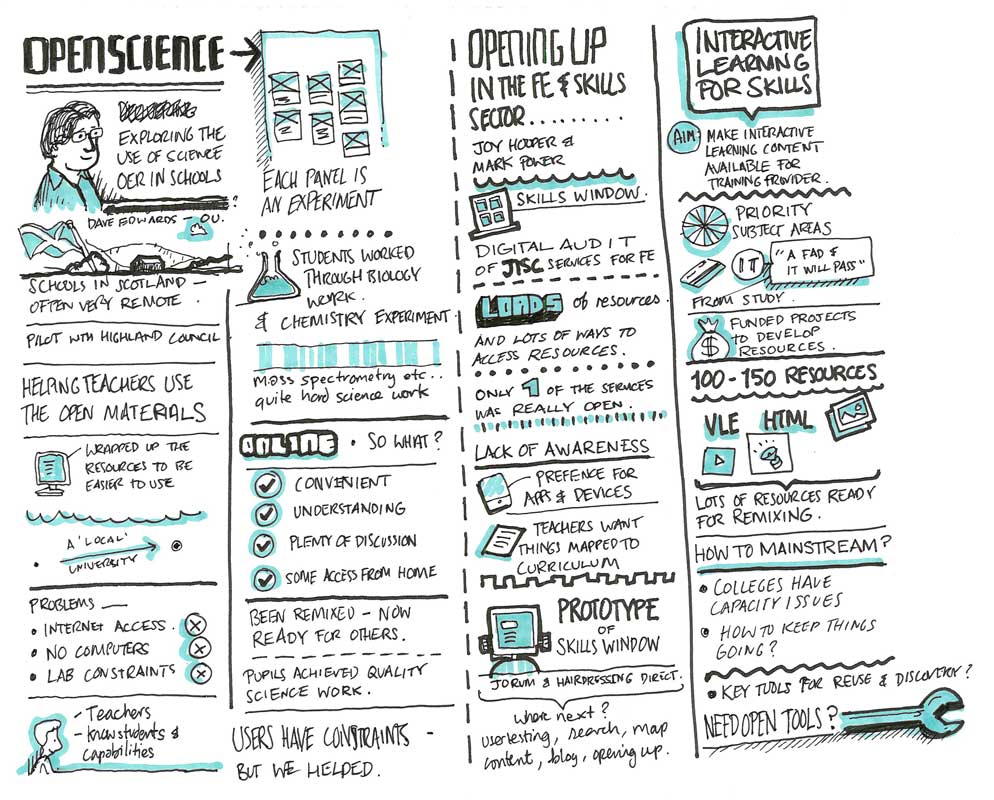 OPENSCIENCE
EXPLORING THE
USE OF SCIENCE
OER IN SCHOOLS
?
DAVE EDWARDS - OU.
SCHOOLS IN SCOTLAND -
OFTEN VERY REMOTE.
PILOT WITH HIGHLAND COUNCIL
HELPING TEACHERS USE
THE OPEN MATERIALS
WRAPPED UP THE
RESOURCES TO BE
EASIER TO USE
A 'LOCAL'
UNIVERSITY
PROBLEMS —
• INTERNET ACCESS.
• NO COMPUTERS
• LAB CONSTRAINTS
- Teachers
- know students &
capabilities
EACH PANEL IS
AN EXPERIMENT
STUDENTS WORKED
THROUGH BIOLOGY
WORK.
& CHEMISTRY EXPERIMENT
mass spectrometry etc..
quite hard science work
ONLINE • SO WHAT?
CONVENIENT
UNDERSTANDING
PLENTY OF DISCUSSION
SOME ACCESS FROM HOME
BEEN REMIXED - NOW
READY FOR OTHERS.
PUPILS ACHIEVED QUALITY
SCIENCE WORK.
USERS HAVE CONSTRAINTS -
BUT WE HELPED.
OPENING UP
IN THE FE & SKILLS
SECTOR..........
JOY HOOPER &
MARK POWER
SKILLS WINDOW.
DIGITAL AUDIT
OF JISC SERVICES FOR FE
LOADS of resources.
AND LOTS OF WAYS TO
ACCESS RESOURCES.
ONLY 1 OF THE SERVICES
WAS REALLY OPEN.
LACK OF AWARENESS
PREFENCE FOR
APPS & DEVICES
TEACHERS WANT
THINGS MAPPED TO
CURRICULUM
PROTOTYPE
OF
SKILLS WINDOW
JORUM & HAIRDRESSING DIRECT.
where next?
usertesting, search, map
content, blog, opening up.
INTERACTIVE
LEARNING
FOR SKILLS
AIM: MAKE INTERACTIVE
LEARNING CONTENT
AVAILABLE FOR
TRAINING PROVIDER.
PRIORITY
SUBJECT AREAS
IT
"A FAD &
IT WILL PASS"
FROM STUDY.
FUNDED PROJECTS
TO DEVELOP
RESOURCES.
$
100-150 RESOURCES
VLE HTML
LOTS OF RESOURCES READY
FOR REMIXING.
HOW TO MAINSTREAM?
• COLLEGES HAVE
CAPACITY ISSUES
• HOW TO KEEP THINGS
GOING?
• KEY TOOLS FOR REUSE & DISCOVERY?
NEED OPEN TOOLS?